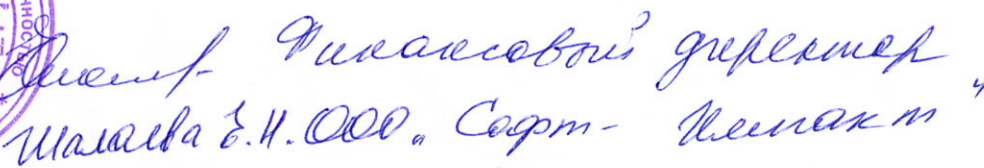 Финансовый директор
Шалаева Е.Н. ООО „Софт-Импакт"